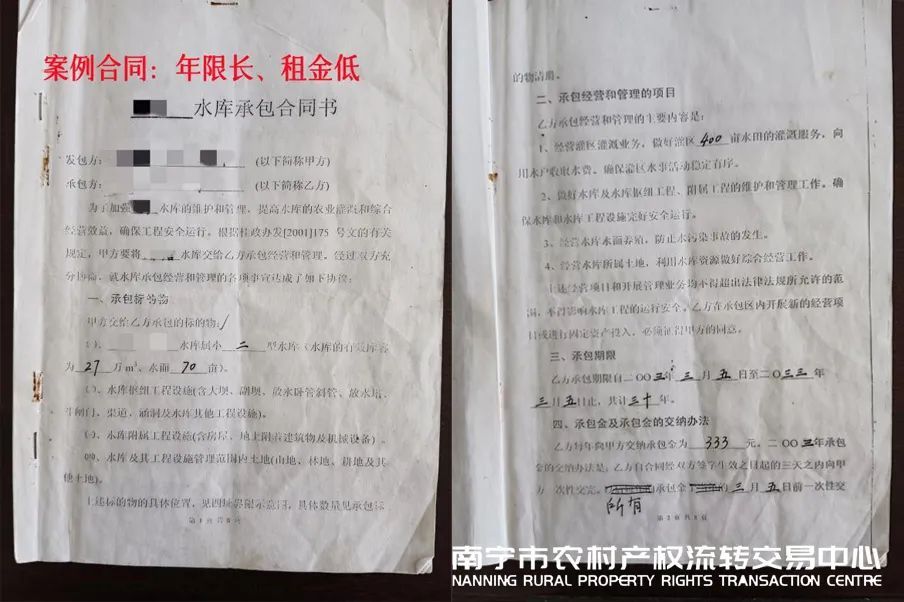 案例合同：年限长、租金低
水库承包合同书
发包方：（以下简称甲方）
承包方：（以下简称乙方）
为了加强水库的维护和管理，提高水库的农业灌溉和综合
经营效益，确保工程安全运行。根据桂政办发[2001]175 号文的有关
规定，甲方要将水库交给乙方承包经营和管理。经过双方充
分协商，就水库承包经营和管理的各项事宜达成了如下协议：
一、承包标的物
甲方交给乙方承包的标的物：
水库属小二型水库（水库的有效库容
为27万m³、水面70亩）。
水库枢纽工程设施(含大坝、副坝、放水卧管斜管、放水塔、
斗闸门、渠道、涵洞及水库其他工程设施)。
水库附属工程设施(含房屋、地上附着建筑物及机械设备）。
水库及其工程设施管理范围内土地(山地、林地、耕地及其
他土地)。
上述标的物的具体位置，见四址界附示意图，具体数量见承包标
第 1 页 共 8 页
的物清册。
二、承包经营和管理的项目
乙方承包经营和管理的主要内容是：
1、经营灌区灌溉业务，做好灌区400亩水田的灌溉服务，向
用水户收取水费。确保灌区水事活动稳定有序。
2、做好水库及水库枢纽工程、附属工程的维护和管理工作。确
保水库和水库工程设施完好安全运行。
3、经营水库水面养殖，防止水污染事故的发生。
4、经营水库所属土地，利用水库资源做好综合经营工作。
上述经营项目和开展管理业务均不得超出法律法规所允许的范
围，不得影响水库工程的运行安全。乙方在承包区内开展新的经营项
目或进行固定资产投入，必须征得甲方的同意。
三、承包期限
乙方承包期限自二OO三年三月五日至二O三三年
三月五日止，共计三十年。
四、承包金及承包金的交纳办法
乙方每年向甲方交纳承包金为333元，二OO三年承包
金的交纳办法是，乙方自合同经双方签字生效之日起的三天之内向甲
方一次性交完。所有的承包金的三月五日前一次性交
第 2 页 共 8 页
南宁市农村产权流转交易中心
NANNING RURAL PROPERTY RIGHTS TRANSACTION CENTRE